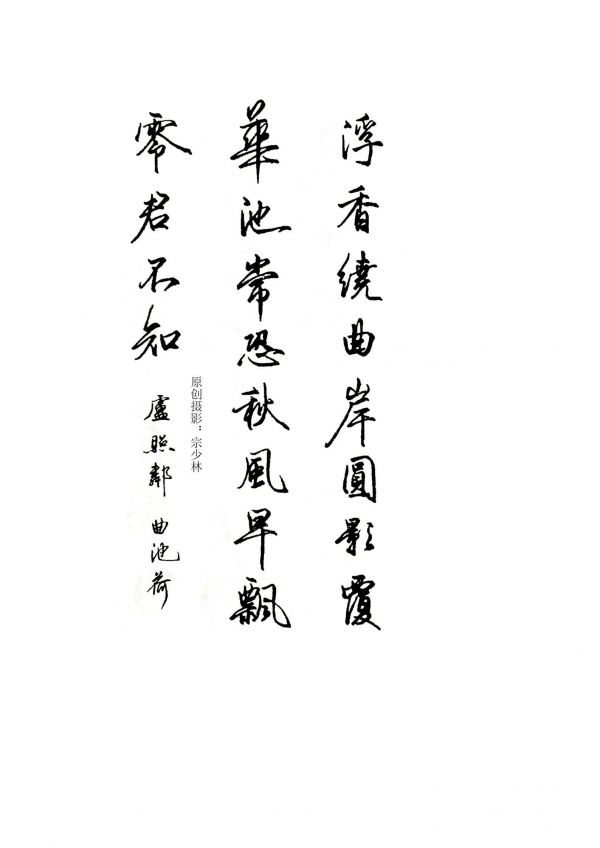 浮香繞曲岸圓影覆
華池常恐秋風早飄
零君不知
盧照鄰 曲池荷
原创摄影：宗少林